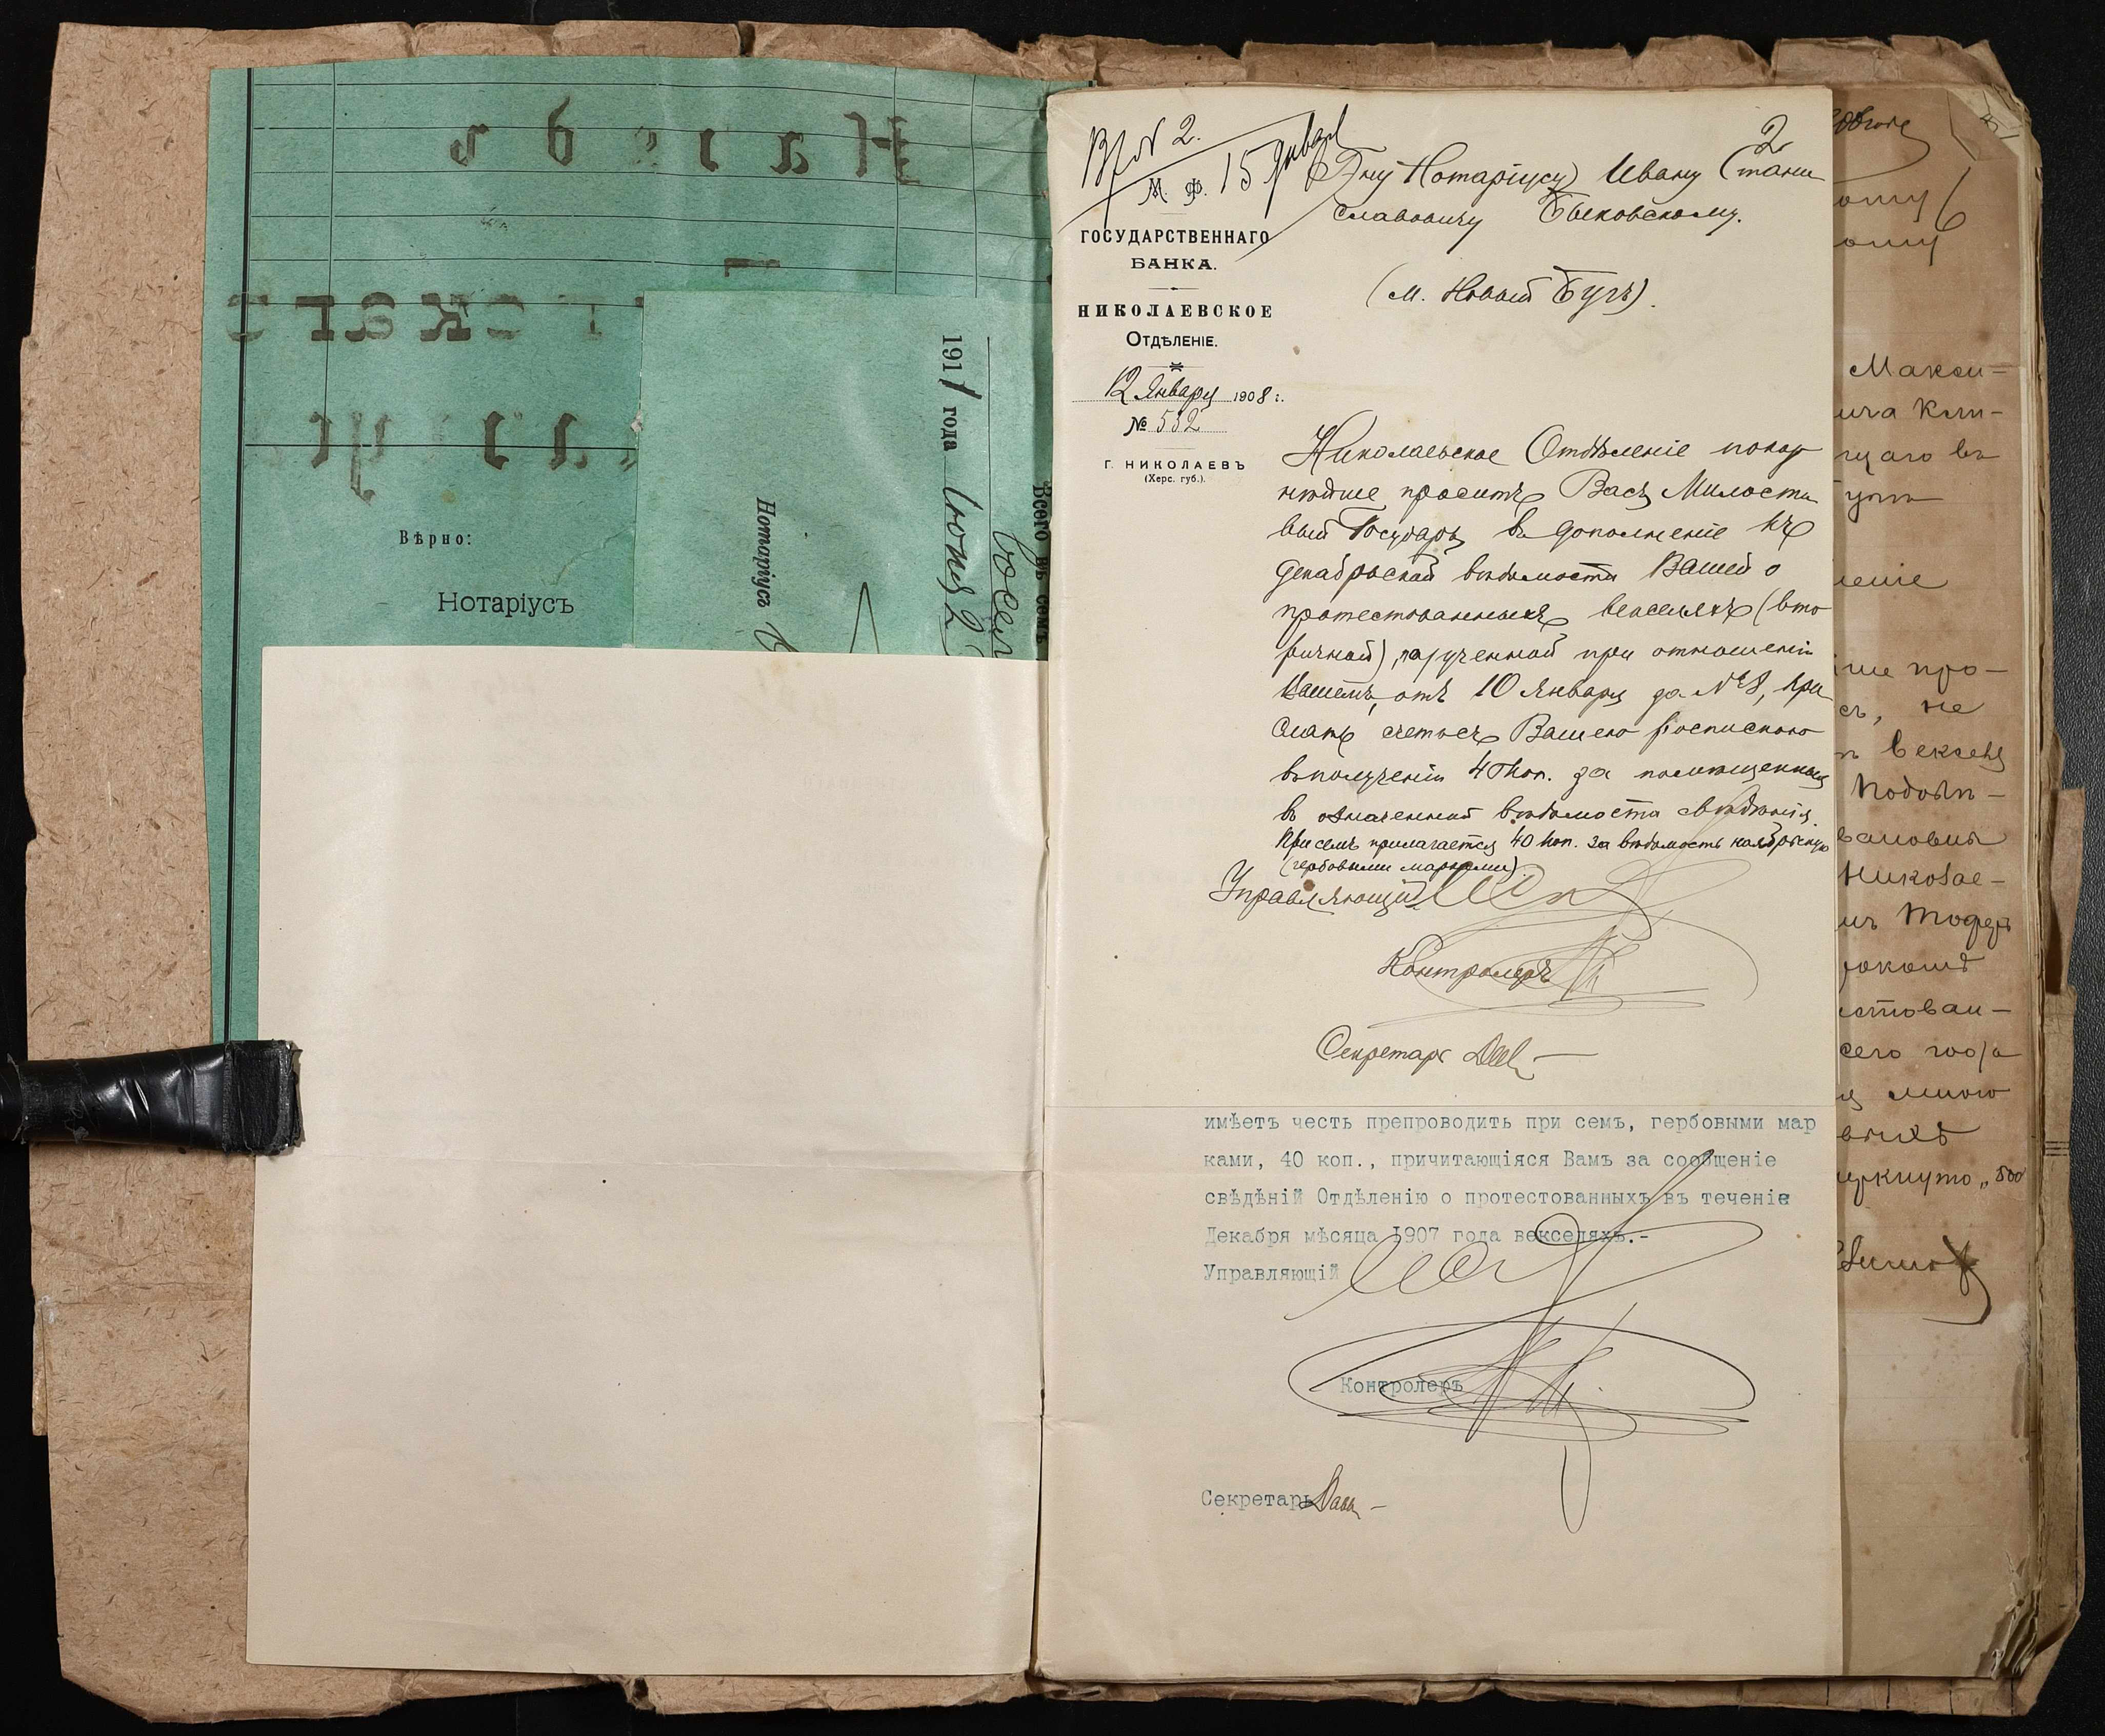 Вѣрно:
Нотаріусъ
1911 года Іюня 2
Нотаріуса
Всего въ семъ
Вх № 2.
15 Января
2
М. Ф.
ГОСУДАРСТВЕННАГО
БАНКА.
НИКОЛАЕВСКОЕ
ОТДѢЛЕНІЕ.
12 Января 1908 г.
№ 532
Г. НИКОЛАЕВЪ
(Херс. губ.).
Гну Нотаріусу Ивану Стани
славовичу Быковскому.
(м. Новый Бугъ).
Николаевское Отдѣленіе покор
нѣйше проситъ Васъ Милости
вый Государь въ дополненіе къ
декабрьской вѣдомости Вашей о
протестованныхъ векселяхъ (вто
ричной), полученной при отношеніи
Вашемъ, отъ 10 Января за № 8, при
слать счетъ съ Вашею роспискою
въ полученіи 40 коп. за помѣщенныя
въ означенной вѣдомости свѣдѣнія.
При семъ прилагается 40 коп. за вѣдомость ноябрьскую
(гербовыми марками).
Управляющій
Контролеръ
Секретарь
имѣетъ честь препроводить при семъ, гербовыми мар
ками, 40 коп., причитающіяся Вамъ за сообщеніе
свѣдѣній Отдѣленію о протестованныхъ въ теченіе
Декабря мѣсяца 1907 года векселяхъ.-
Управляющій
Контролеръ
Секретарь
Макси-
щаго въ
ше про-
съ, не
векселя
Николае-
стован-
сего года
мною